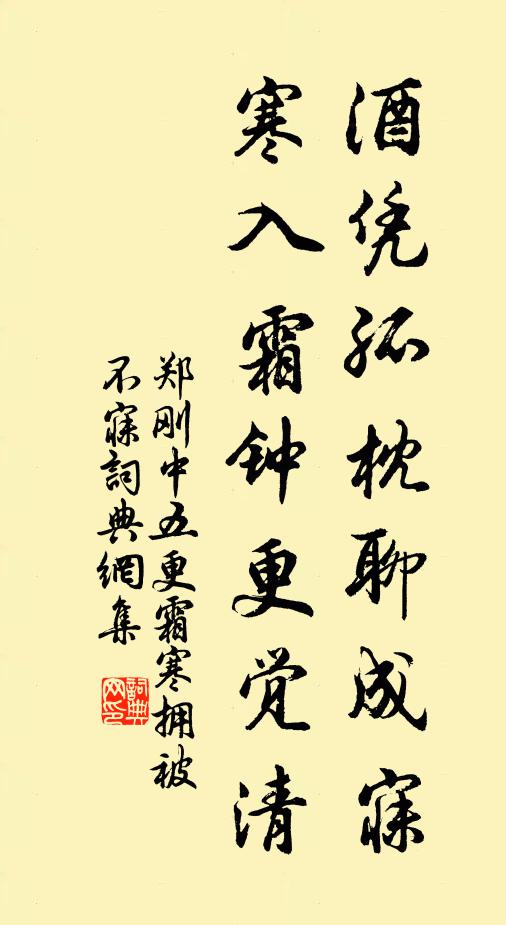 酒凭孤枕聊成寐
寒入霜钟更觉清
郑刚中五更霜寒拥被
不寐詞典網集
詞典
网印